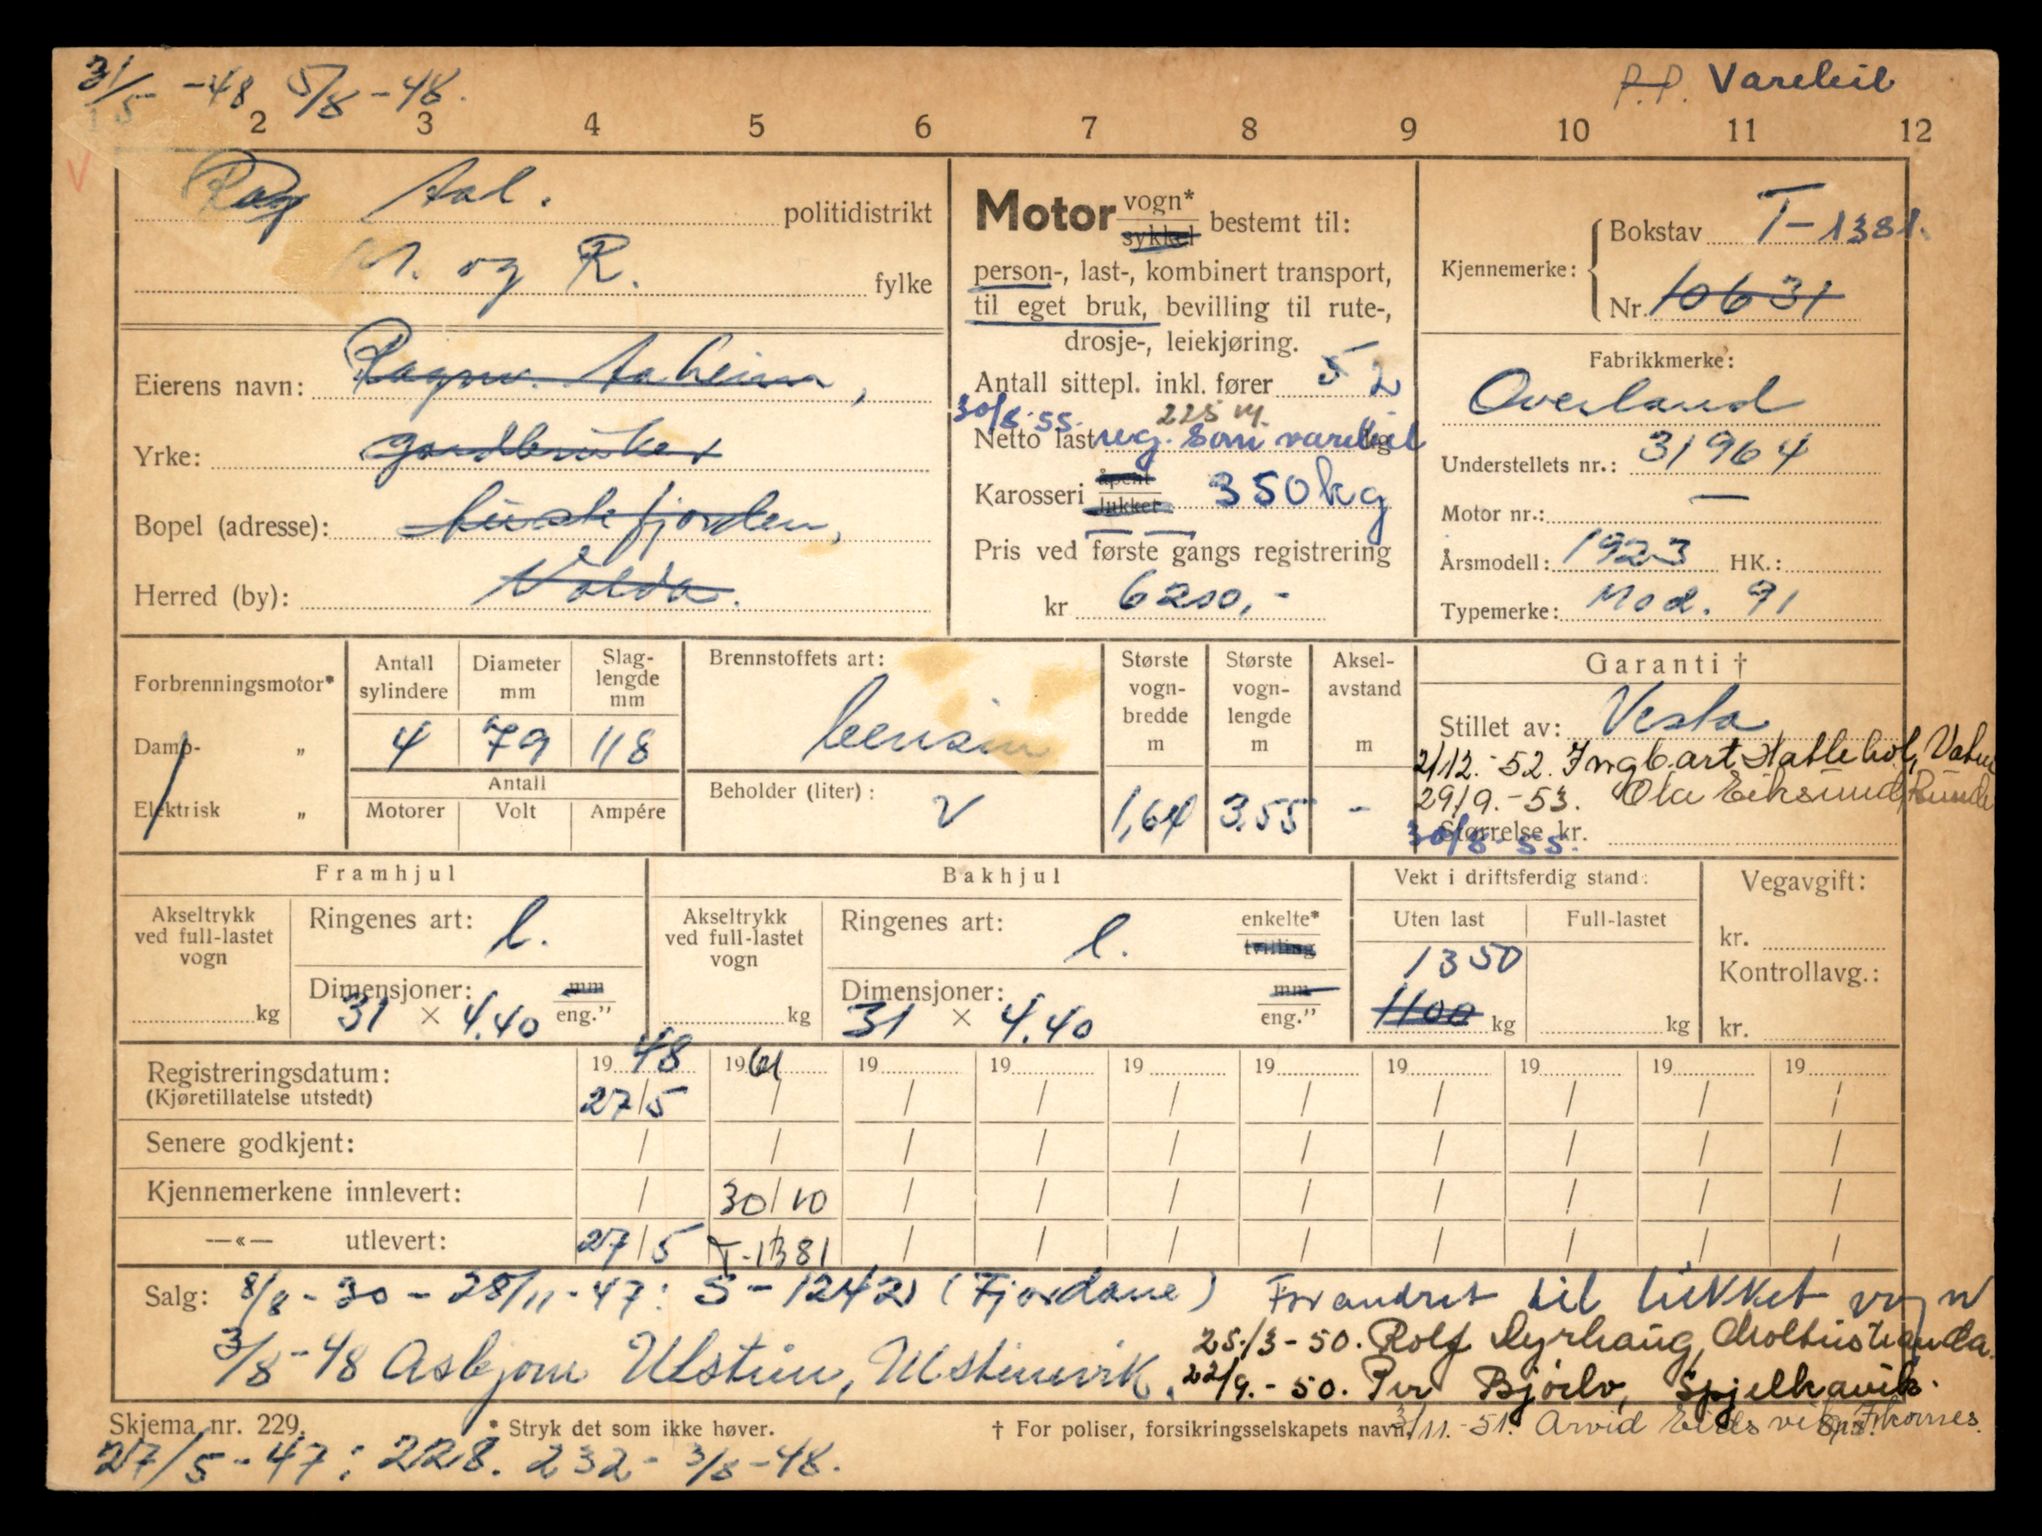 31/5 -48 5/8 -48.
P.P. Varebil
1 2 3 4 5 6 7 8 9 10 11 12
V
Aal. politidistrikt
M. og R. fylke
Eierens navn: Ragnv. Aaheim,
Yrke: gardbruker
Bopel (adresse): fjorden,
Herred (by): Volda.
Motor vogn* sykkel bestemt til:
person-, last-, kombinert transport,
til eget bruk, bevilling til rute-,
drosje-, leiekjøring.
Antall sittepl. inkl. fører 5 2
30/8-55. 225 M.
Netto last reg. som varebil kg
Karosseri åpent lukket 350 kg
Pris ved første gangs registrering
kr 6200,-
Kjennemerke: Bokstav T-1381.
Nr. 10631
Fabrikkmerke:
Overland
Understellets nr.: 31964
Motor nr.: —
Årsmodell: 1923 HK.:
Typemerke: Mod. 91
Forbrenningsmotor*
Damp- „
Elektrisk „
Antall sylindere Diameter mm Slag-lengde mm
4 79 118
Antall
Motorer Volt Ampére
Brennstoffets art:
bensin
Beholder (liter): V
Største vogn-bredde m Største vogn-lengde m Aksel-avstand m
1,64 3,55 -
Garanti †
Stillet av: Vesta
2/12.-52. Ingb.art Hatlehol, Vatne
29/9.-53. Ola Eiksund, Runde
Størrelse kr.
30/8-55.
Framhjul
Akseltrykk ved full-lastet vogn
kg
Ringenes art: l.
Dimensjoner: mm
31 × 4.40 eng.”
Bakhjul
Akseltrykk ved full-lastet vogn
kg
Ringenes art: l. enkelte* tvilling
Dimensjoner: mm
31 × 4.40 eng.”
Vekt i driftsferdig stand:
Uten last Full-lastet
1350
1100 kg kg
Vegavgift:
kr.
Kontrollavg.:
kr.
Registreringsdatum: 19 48 19 61 19 19 19 19 19 19 19 19
(Kjøretillatelse utstedt) 27/5 / / / / / / / / /
Senere godkjent: / / / / / / / / / /
Kjennemerkene innlevert: / 30/10 / / / / / / / /
—«— utlevert: 27/5 T-1381 / / / / / / / /
Salg: 8/8-30 - 28/11-47: S-1242 (Fjordane) Forandret til lukket vogn
3/8-48 Asbjørn Ulstein, Ulsteinvik.
25./3-50. Rolf Dyrhaug, Moltustranda.
22/9.-50. Per Bjørlo, Spjelkavik.
Skjema nr. 229. * Stryk det som ikke høver. † For poliser, forsikringsselskapets navn.
3/11.-51. Arvid Eidsvik,
27/5-47: 228. 232- 3/8-48.